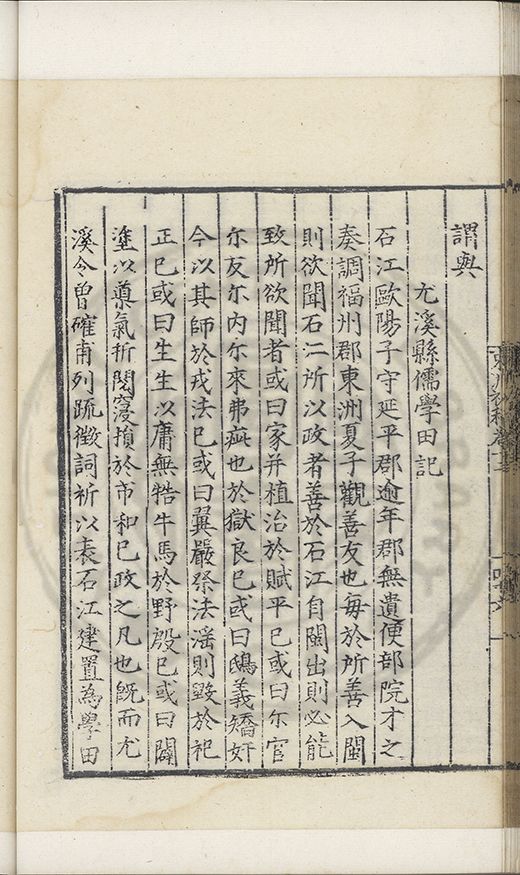 謂與
尤溪縣儒學田記
石江歐陽子守延平郡逾年郡無遺使部院才之
奏調福州郡東洲夏子觀善友也每於所善入閩
則欲聞石江所以政者善於石江自閩出則必能
致所欲聞者或曰家并植治於賦平已或曰尔官
尔友尔内尔來弗疵也於獄良已或曰鴟義矯奸
今以其師於戎法已或曰翼嚴祭法滛則毀於祀
正已或曰生生以庸無牿牛馬於野殷已或曰闢
塗以導氣析閱窒損於市和已政之凡也旣而尤
溪令曾確甫列疏徵詞祈以表石江建置為學田